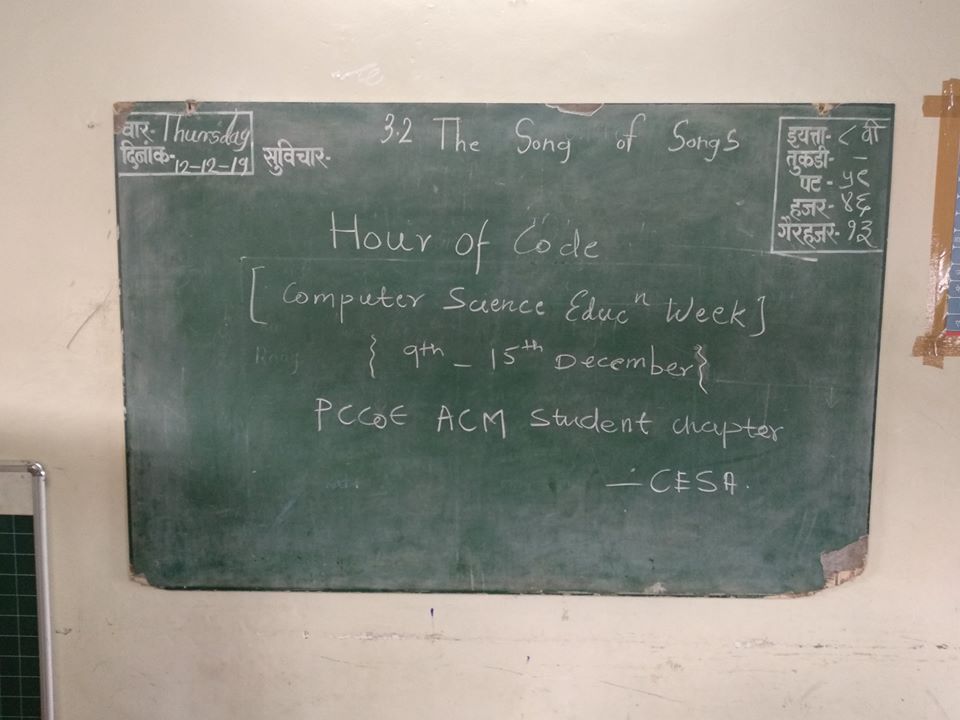 वार- Thursday
दिनांक- 12-12-19
सुविचार-
3.2 The Song of Songs
इयत्ता- ८ वी
तुकडी- -
पट - ५९
हजर- ४६
गैरहजर- १३
Hour of Code
[Computer Science Educⁿ Week]
{ 9th - 15th December}
PCCoE ACM Student chapter
- CESA.